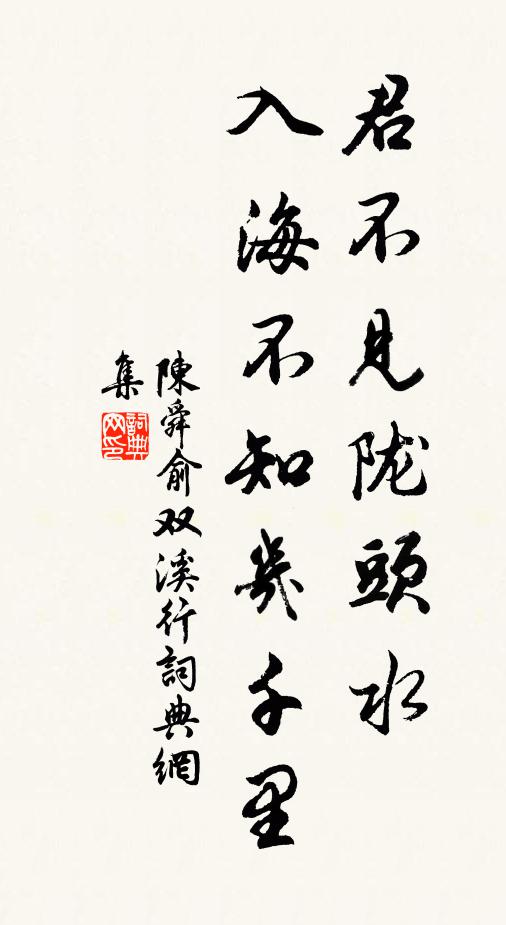 君不见陇頭水
入海不知幾千里
陳舜俞双溪行詞典網
集
詞典
网印